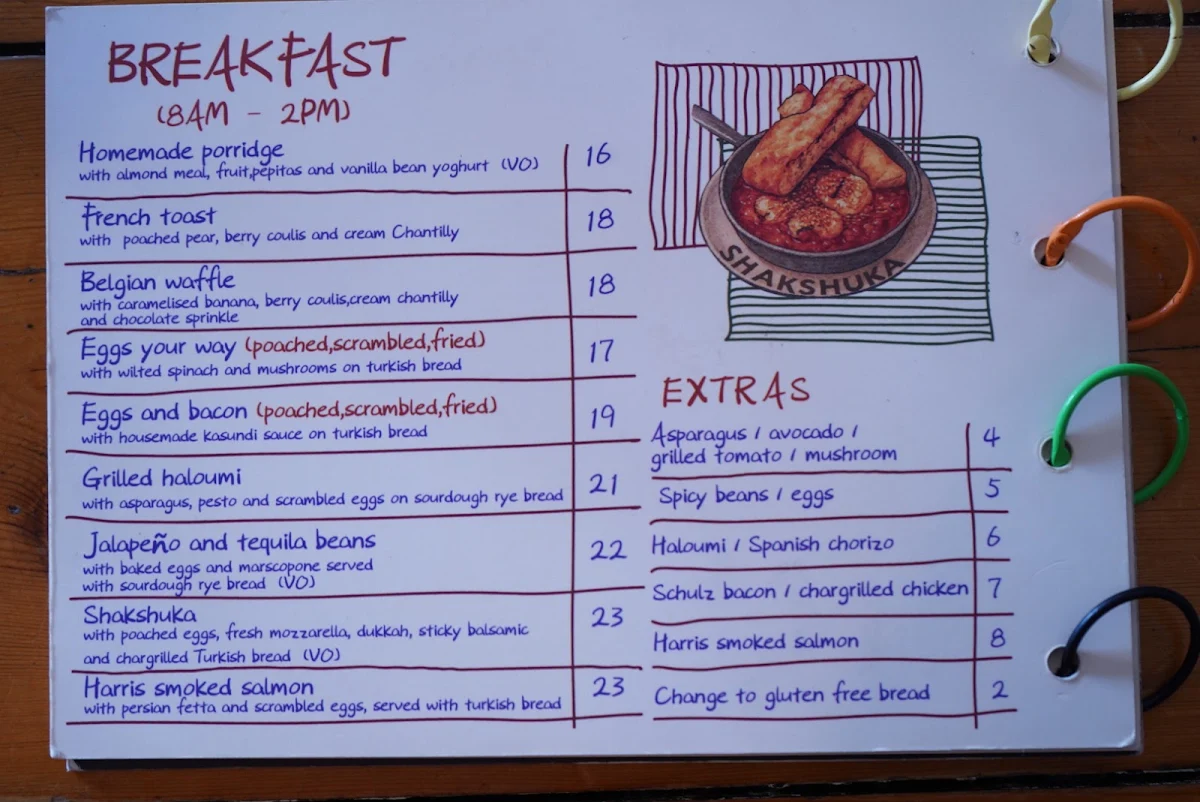 BREAKFAST
(8AM - 2PM)
Homemade porridge 16
with almond meal, fruit,pepitas and vanilla bean yoghurt (VO)
French toast 18
with poached pear, berry coulis and cream Chantilly
Belgian waffle 18
with caramelised banana, berry coulis,cream chantilly
and chocolate sprinkle
Eggs your way (poached,scrambled,fried) 17
with wilted spinach and mushrooms on turkish bread
Eggs and bacon (poached,scrambled,fried) 19
with housemade kasundi sauce on turkish bread
Grilled haloumi 21
with asparagus, pesto and scrambled eggs on sourdough rye bread
Jalapeño and tequila beans 22
with baked eggs and marscopone served
with sourdough rye bread (VO)
Shakshuka 23
with poached eggs, fresh mozzarella, dukkah, sticky balsamic
and chargrilled Turkish bread (VO)
Harris smoked salmon 23
with persian fetta and scrambled eggs, served with turkish bread
SHAKSHUKA
EXTRAS
Asparagus / avocado / 4
grilled tomato / mushroom
Spicy beans / eggs 5
Haloumi / Spanish chorizo 6
Schulz bacon / chargrilled chicken 7
Harris smoked salmon 8
Change to gluten free bread 2